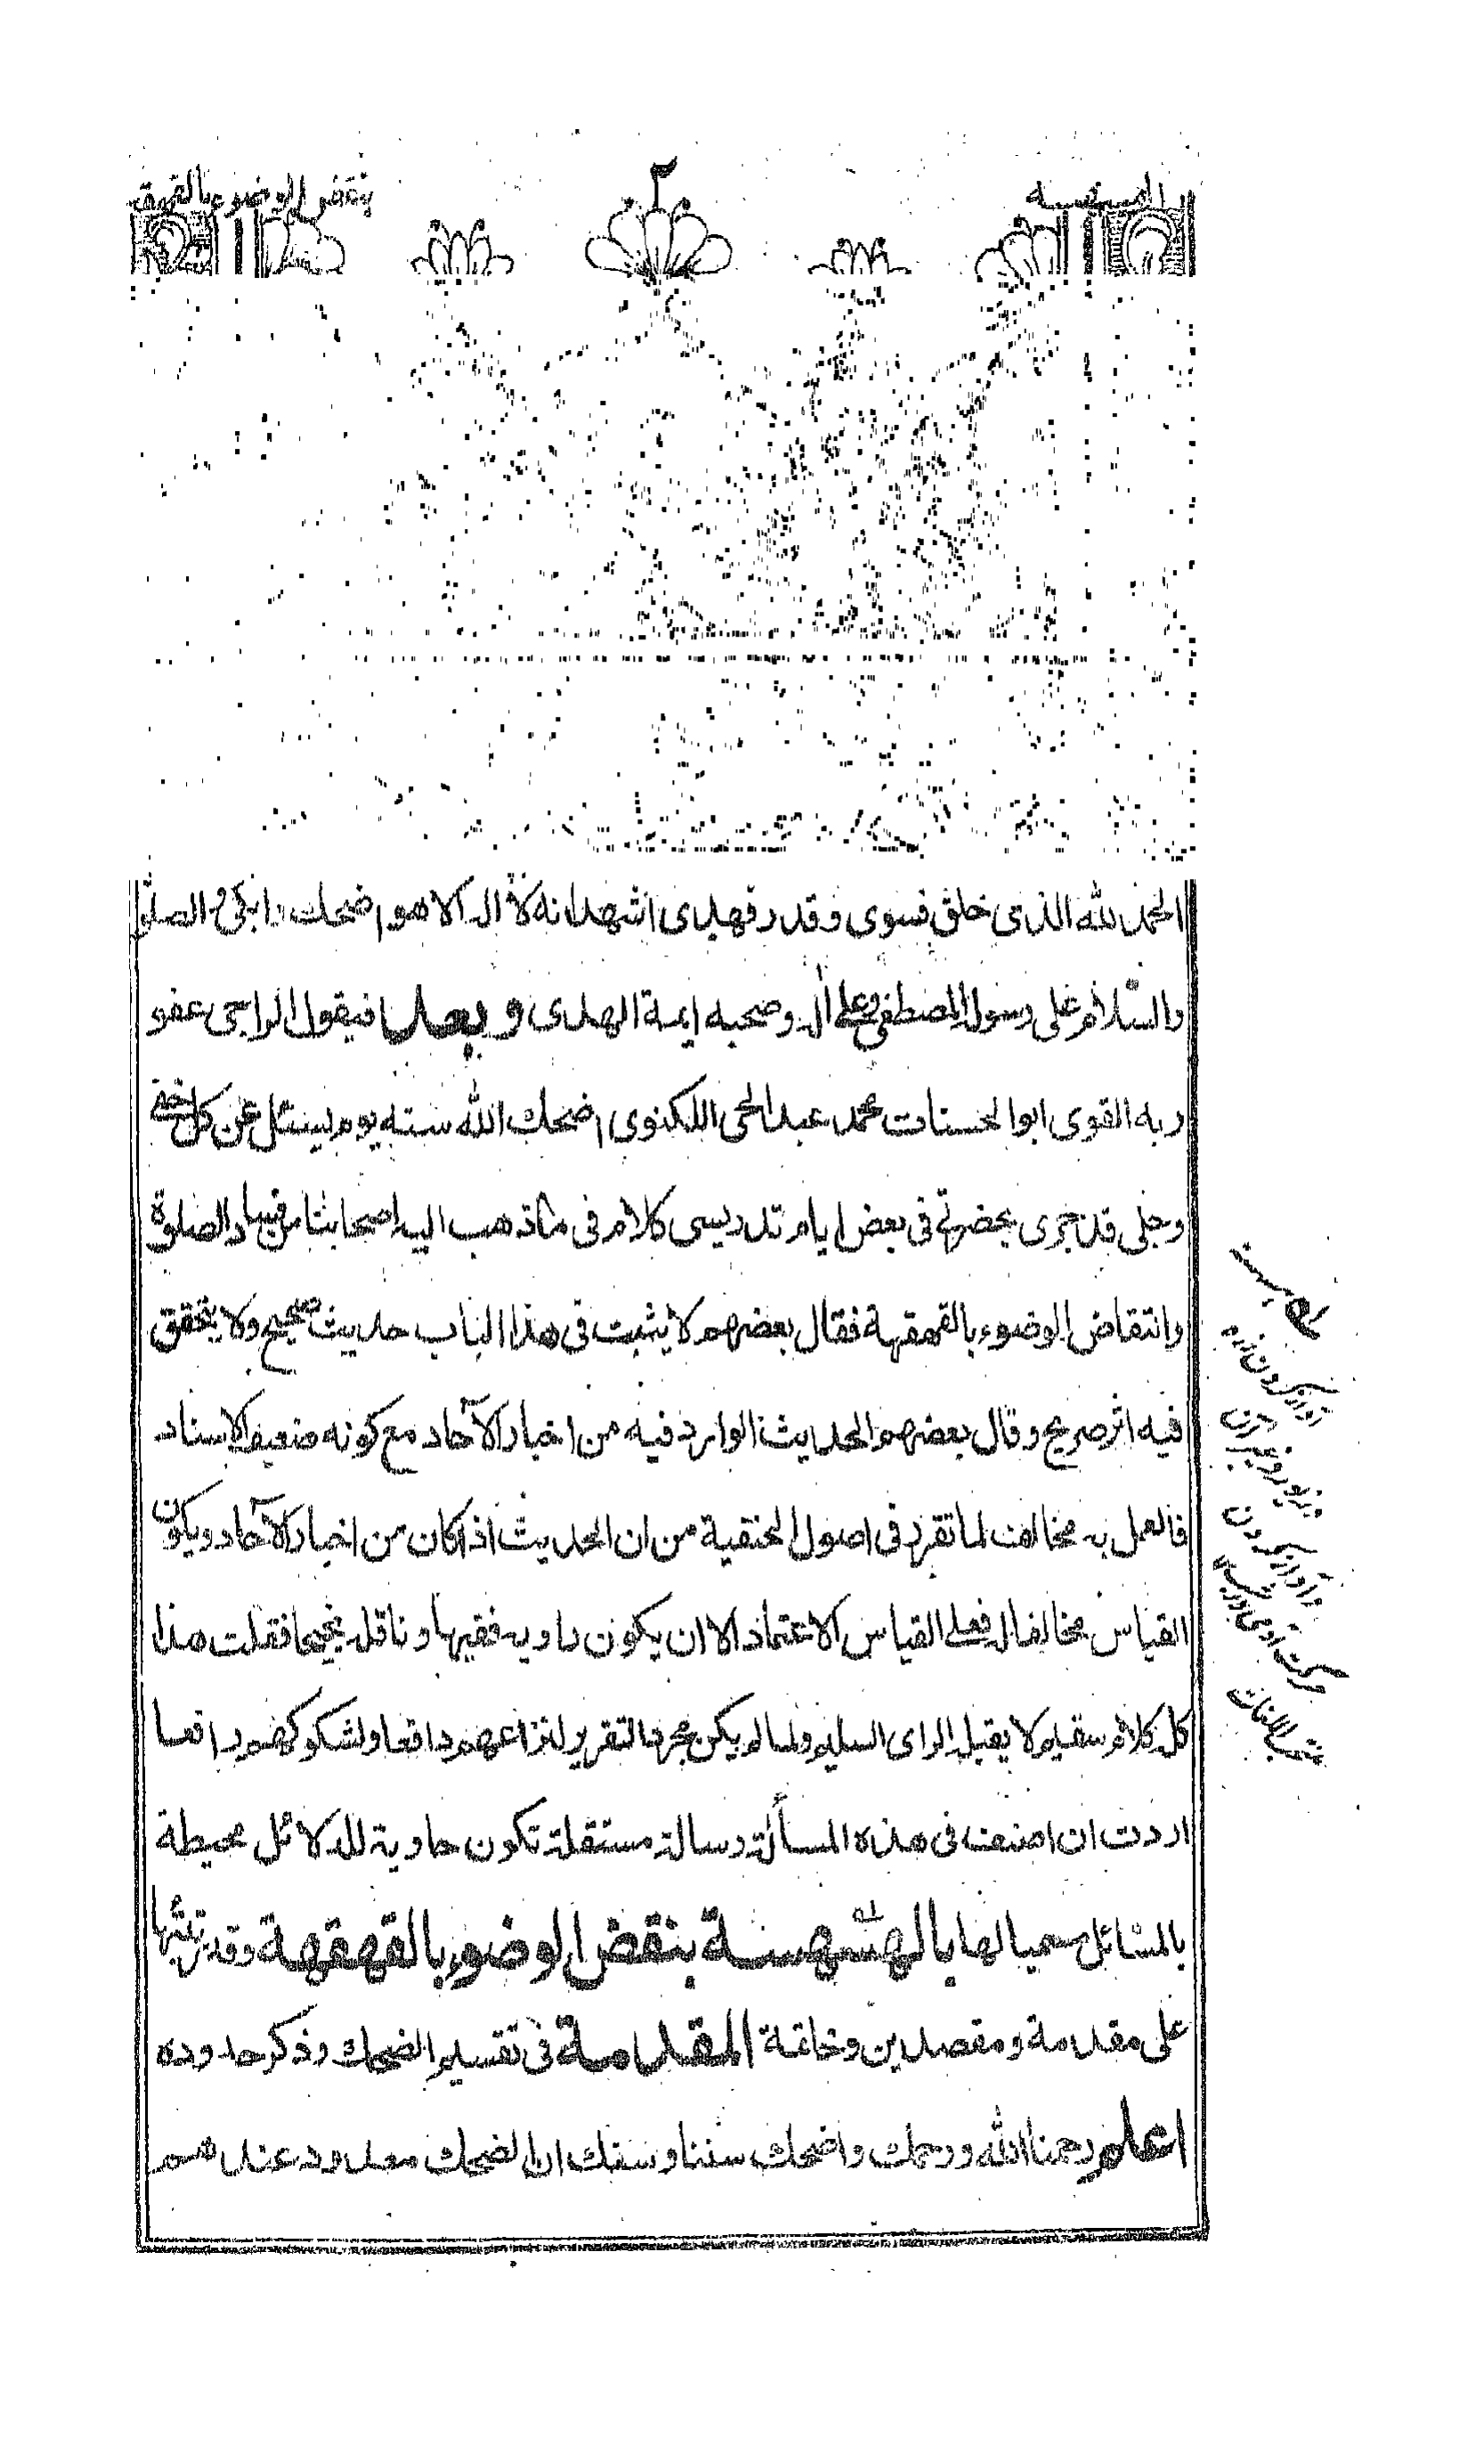 الهسهسة
٢
بنقض الوضوء بالقهقهة
الحمد لله الذى خلق فسوى وقدر فهدى اشهد انه لا اله الا هو اضحك وابكى والصلوة
والسلام على رسوله المصطفى وعلى اله وصحبه ايمة الهدى وبعد فيقول الراجى عفو
ربه القوى ابو الحسنات محمد عبد الحى اللكنوى اضحك الله سنه يوم يسئل عن كل خفى
وجلى قد جرى بحضرتى فى بعض ايام تدريسى كلام فى ما ذهب اليه اصحابنا من فساد الصلوة
وانتقاض الوضوء بالقهقهة فقال بعضهم لا يثبت فى هذا الباب حديث صحيح ولا يتحقق
فيه اثر صريح وقال بعضهم الحديث الوارد فيه من اخبار الآحاد مع كونه ضعيف الاسناد
فالعمل به مخالف لما تقرر فى اصول الحنفية من ان الحديث اذا كان من اخبار الآحاد ويكون
القياس مخالفا له فعلى القياس الاعتماد الا ان يكون راويه فقيها وناقله نجيحا فقلت هذا
كل كلام سقيم لا يقبله الراى السليم ولما لم يكن مجرد التقرير لنزاعهم دافعا ولشكوكهم رافعا
اردت ان اصنف فى هذه المسألة رسالة مستقلة تكون حاوية للدلائل محيطة
بالمسائل مسميا لها بالهسهسة بنقض الوضوء بالقهقهة وقد رتبتها
على مقدمة ومقصدين وخاتمة المقدمة فى تفسير الضحك وذكر حدوده
اعلم رحمنا الله ورحمك واضحك سننا وسنك ان الضحك معدود عندهم
آواز كردن زره
وزيور وغير آن
وآواز كردن
منتخب اللغات